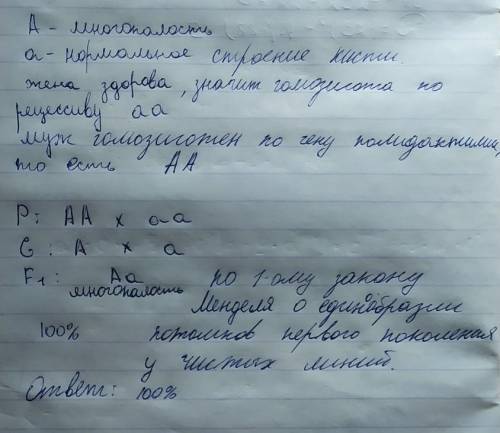 А - многопалость
а - нормальное строение кисти.
жена здорова, значит гомозигота по
рецессиву аа
муж гомозиготен по гену полидактилии,
то есть АА
Р: АА х аа
G: А х а
F1: Аа по 1-ому закону
многопалость Менделя о единобразии
100% потомков первого поколения
у чистых линий.
Ответ: 100%